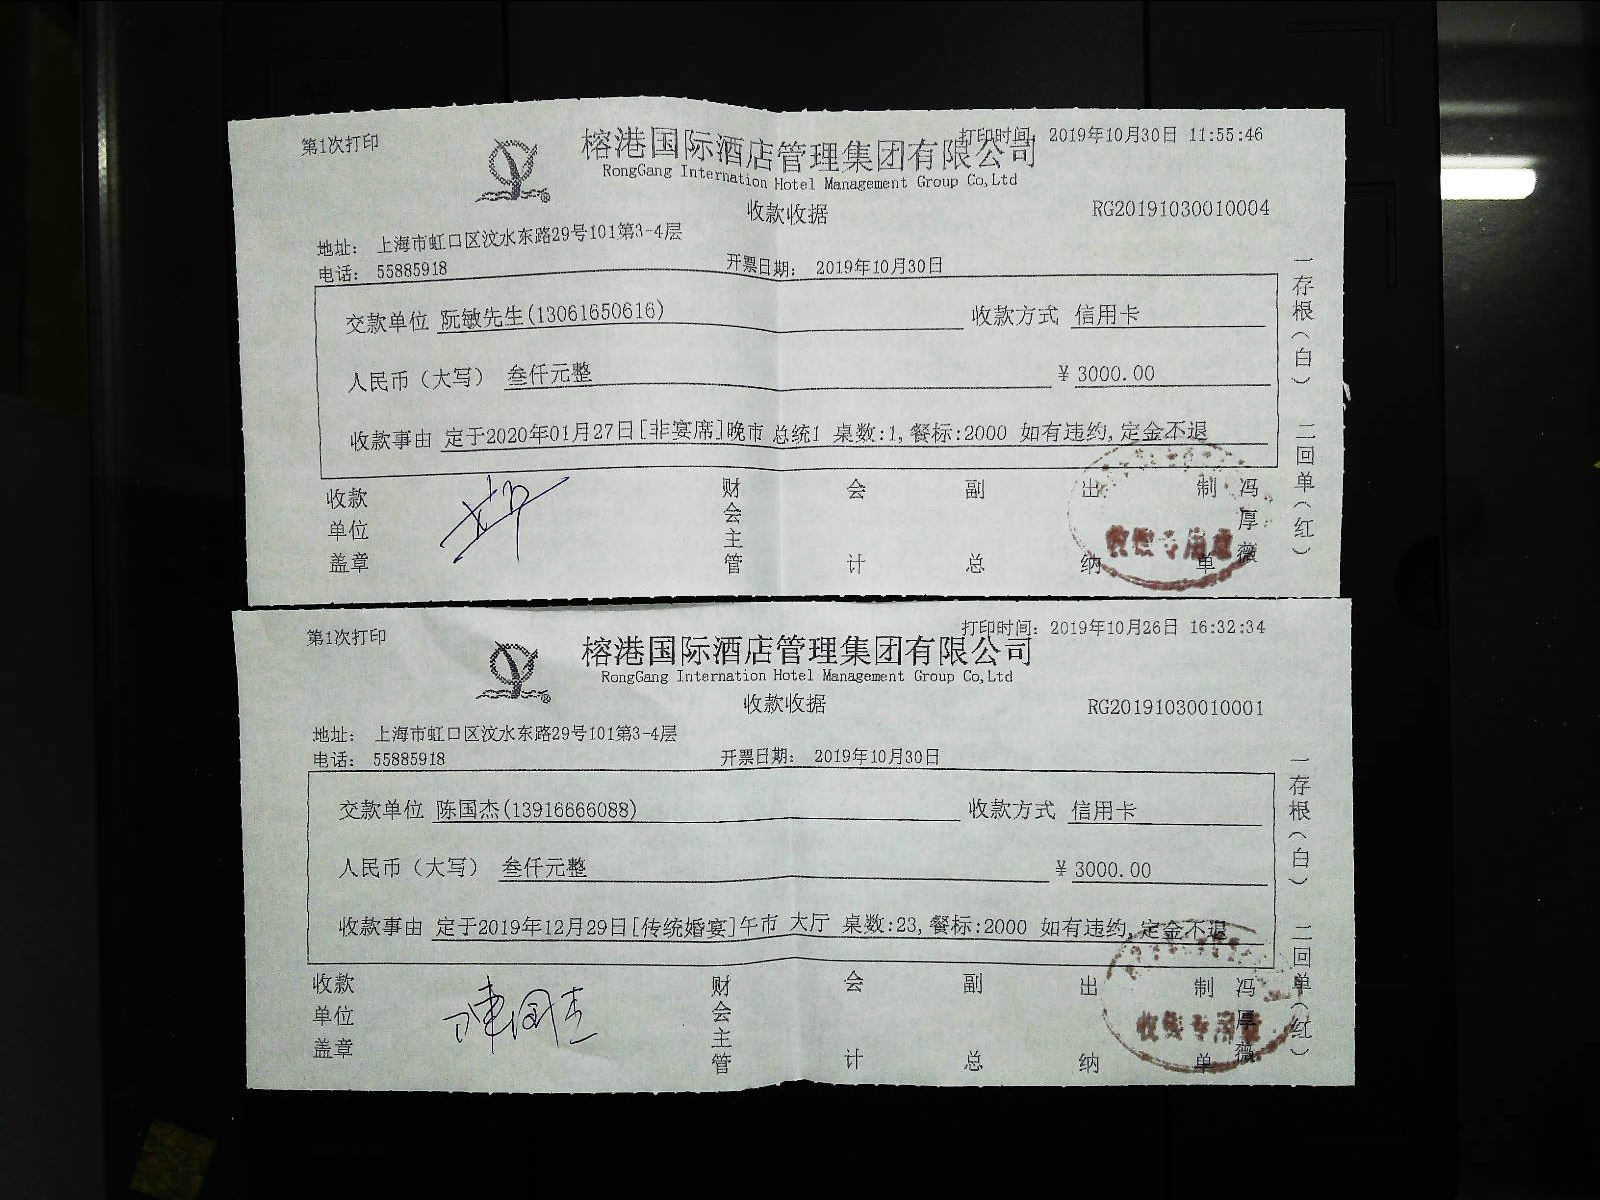 第1次打印
打印时间: 2019年10月30日 11:55:46
榕港国际酒店管理集团有限公司
RongGang Internation Hotel Management Group Co,Ltd
收款收据
RG20191030010004
地址: 上海市虹口区汶水东路29号101第3-4层
电话: 55885918
开票日期: 2019年10月30日
交款单位 阮敏先生(13061650616) 收款方式 信用卡
人民币（大写） 叁仟元整 ¥ 3000.00
收款事由 定于2020年01月27日[非宴席]晚市 总统1 桌数:1,餐标:2000 如有违约,定金不退
收款单位盖章
财会主管
会计
副总
出纳
制单
冯厚薇
收银专用章
一存根(白) 二回单(红)
第1次打印
打印时间: 2019年10月26日 16:32:34
榕港国际酒店管理集团有限公司
RongGang Internation Hotel Management Group Co,Ltd
收款收据
RG20191030010001
地址: 上海市虹口区汶水东路29号101第3-4层
电话: 55885918
开票日期: 2019年10月30日
交款单位 陈国杰(13916666088) 收款方式 信用卡
人民币（大写） 叁仟元整 ¥ 3000.00
收款事由 定于2019年12月29日[传统婚宴]午市 大厅 桌数:23,餐标:2000 如有违约,定金不退
收款单位盖章
陳国杰
财会主管
会计
副总
出纳
制单
冯厚薇
收银专用章
一存根(白) 二回单(红)